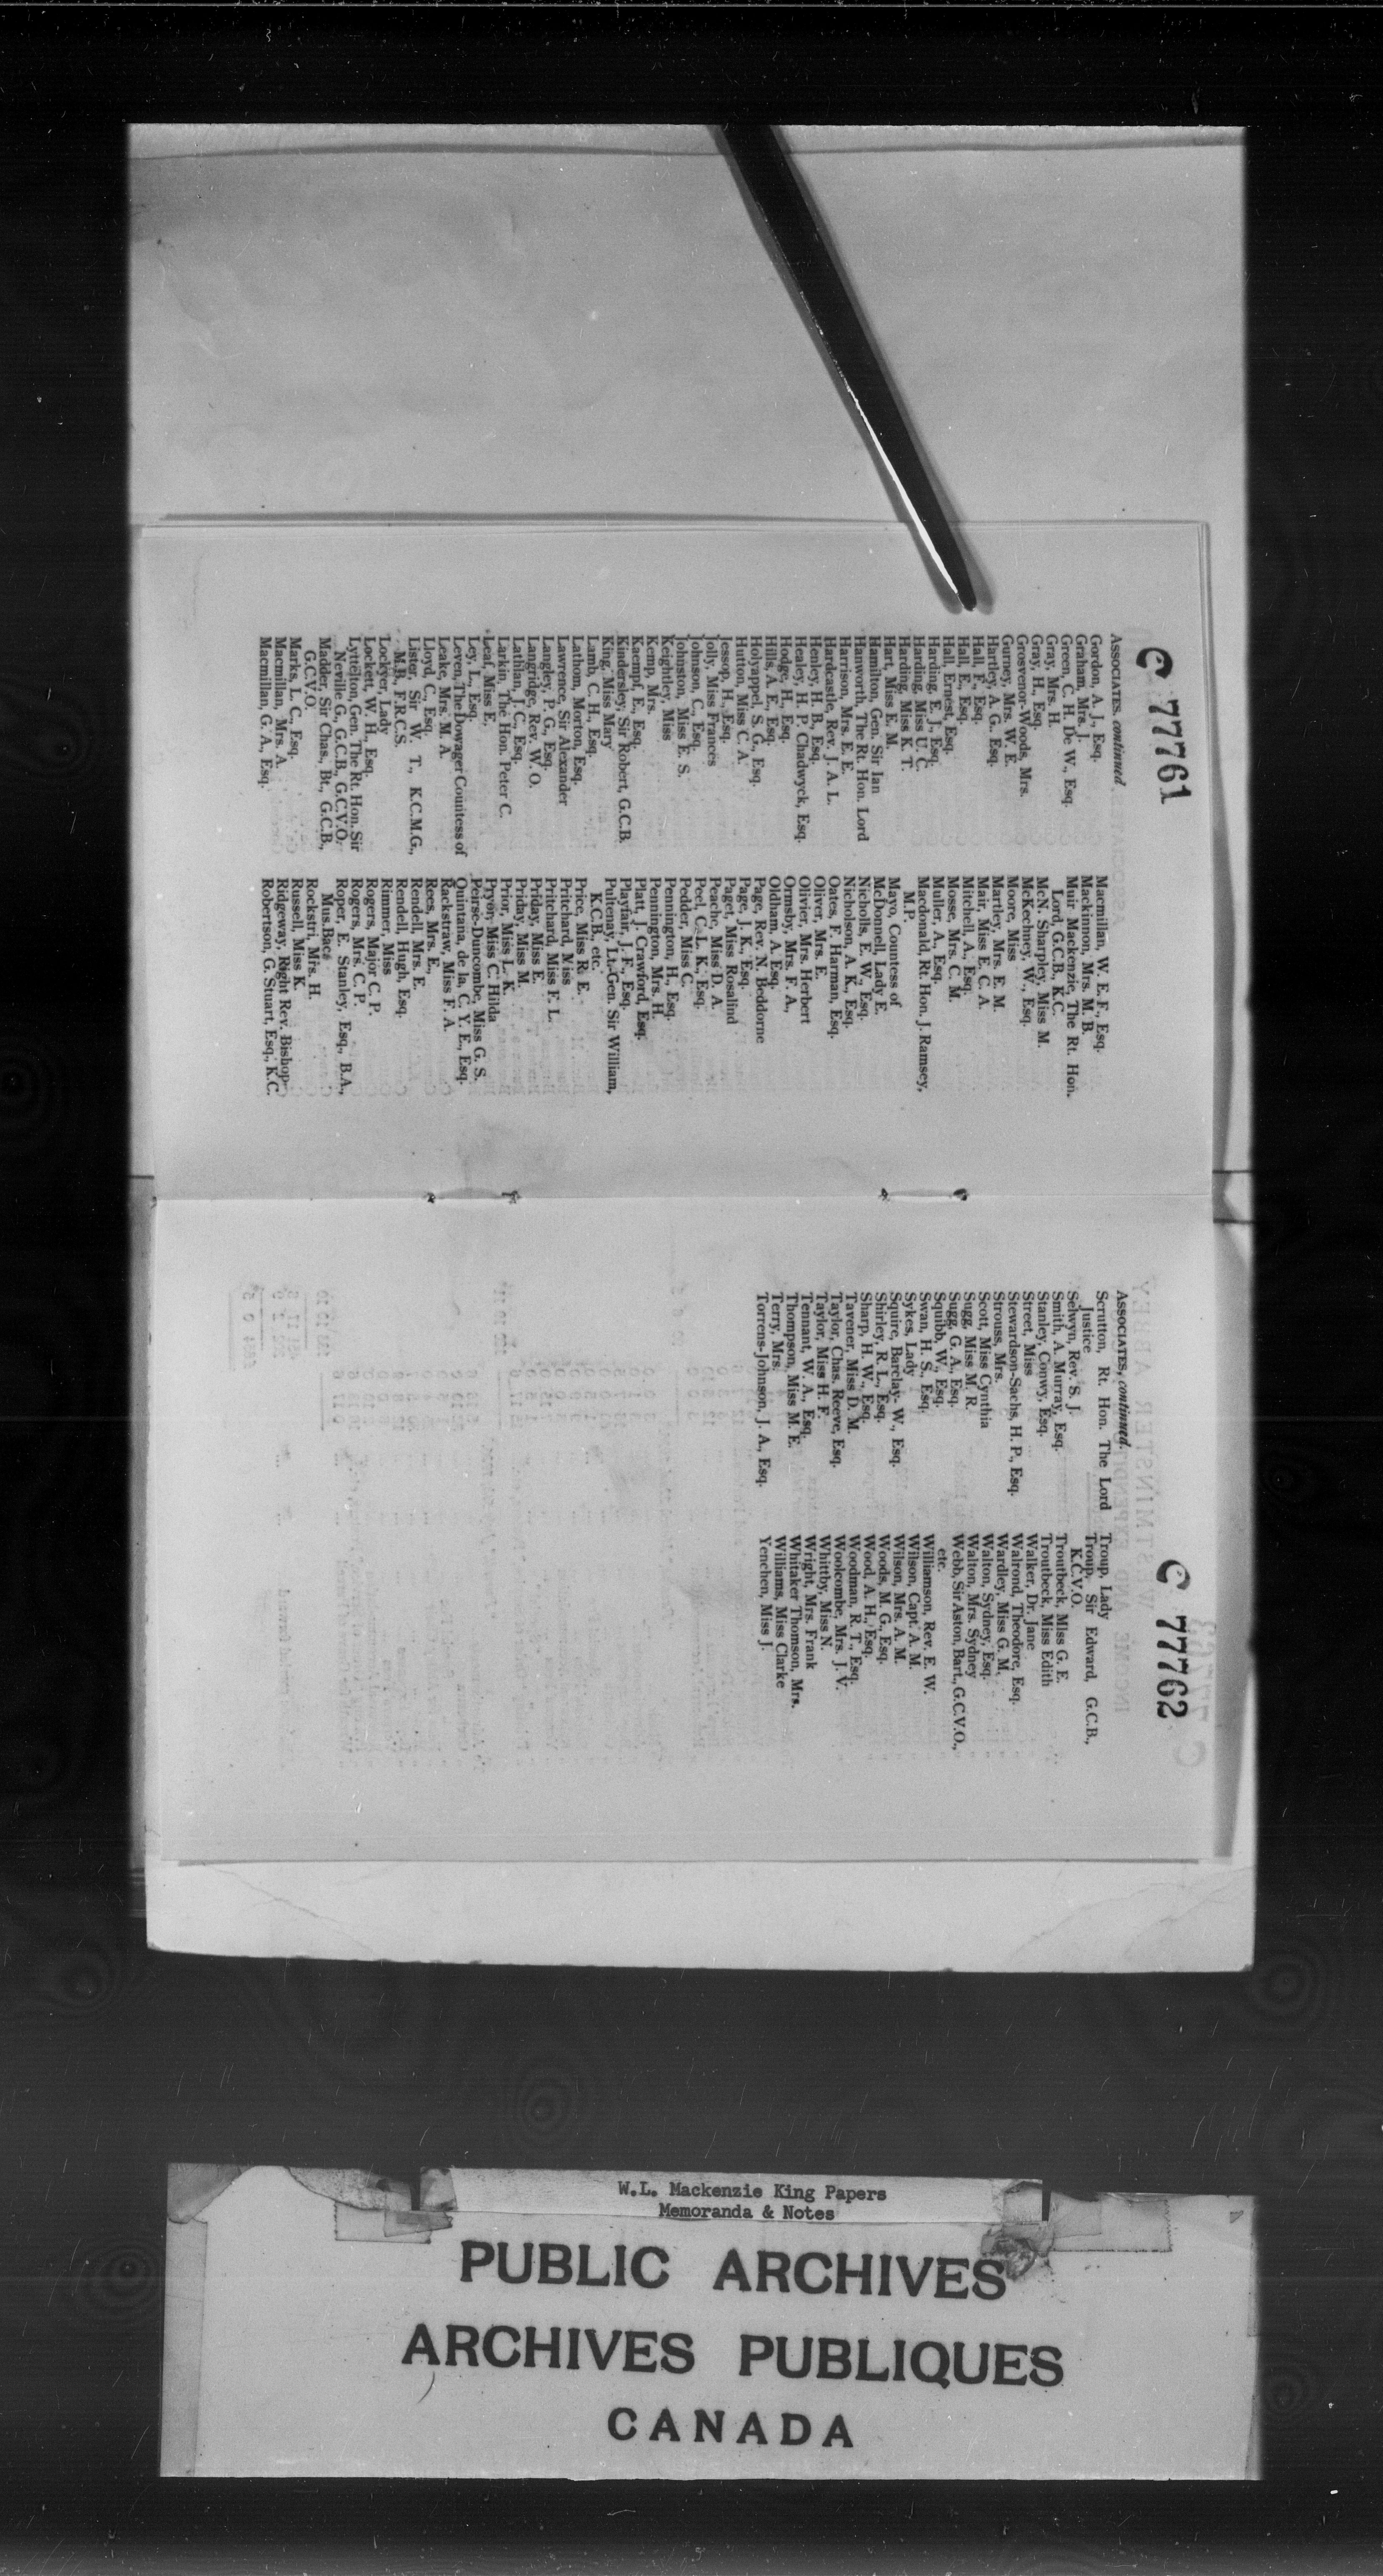 C 77761
ASSOCIATES, continued
Gordon, A. J., Esq.
Graham, Mrs. J.
Green, C. H. De W., Esq.
Gray, Mrs. H.
Gray, H., Esq.
Grosvenor-Woods, Mrs.
Gurney, Mrs. W. E.
Hartley, A. G., Esq.
Hall, F., Esq.
Hall, E., Esq.
Hall, Ernest, Esq.
Harding, E. J., Esq.
Harding, Miss U. C.
Harding, Miss K. T.
Hart, Miss E. M.
Hamilton, Gen. Sir Ian
Hanworth, The Rt. Hon. Lord
Harrison, Mrs. E. E.
Hardcastle, Rev. J. A. L.
Henley, H. B., Esq.
Healey, H. P. Chadwyck, Esq.
Hodge, H., Esq.
Hills, A. E., Esq.
Holyappel, S. G., Esq.
Hutton, Miss C. A.
Jessop, H., Esq.
Jolly, Miss Frances
Johnson, C., Esq.
Johnston, Miss E. S.
Keightley, Miss
Kemp, Mrs.
Kaempf, E., Esq.
Kindersley, Sir Robert, G.C.B.
King, Miss Mary
Lamb, C. H., Esq.
Lathom, Morton, Esq.
Lawrence, Sir Alexander
Langley, P. G., Esq.
Langridge, Rev. W. O.
Lathlan, J. C., Esq.
Larkin, The Hon. Peter C.
Leaf, Miss E.
Ley, L., Esq.
Leven, The Dowager Countess of
Leake, Mrs. M. A.
Lloyd, C., Esq.
Lister, Sir W. T., K.C.M.G.,
M.B., F.R.C.S.
Lockyer, Lady
Lockett, W. H., Esq.
Lyttelton, Gen. The Rt. Hon. Sir
Neville G., G.C.B., G.C.V.O.
Madder, Sir Chas., Bt., G.C.B.,
G.C.V.O.
Marks, L. C., Esq.
Macmillan, Mrs. A.
Macmillan, G. A., Esq.
Macmillan, W. E. F., Esq.
Mackinnon, Mrs. M. B.
Muir Mackenzie, The Rt. Hon.
Lord, G.C.B., K.C.
McN. Sharpley, Miss M.
McKechney, W., Esq.
Moore, Miss
Martley, Mrs. E. M.
Mair, Miss E. C. A.
Mitchell, A., Esq.
Mosse, Mrs. C. M.
Muller, A., Esq.
Macdonald, Rt. Hon. J. Ramsey,
M.P.
Mayo, Countess of
McDonnell, Lady E.
Nicholls, E. W., Esq.
Nicholson, A. K., Esq.
Oates, F. Harman, Esq.
Oliver, Mrs. E.
Olivier, Mrs. Herbert
Ormsby, Mrs. F. A.,
Oldham, A. Esq.
Page, Rev. N. Beddorne
Page, J. K., Esq.
Paget, Miss Rosalind
Peache, Miss D. A.
Peel, C. L. K., Esq.
Pedder, Miss C.
Pennington, H., Esq.
Pennington, Mrs. H.
Platt, J. Crawford, Esq.
Playfair, J. F., Esq.
Pultenay, Lt.-Gen. Sir William,
K.C.B., etc.
Price, Miss R. E.
Pritchard, Miss
Pritchard, Miss F. L.
Priday, Miss E.
Priday, Miss M.
Prior, Miss L. K.
Pryor, Miss C. Hilda
Peirse-Duncombe, Miss G. S.
Quintana, de la, C. Y. E., Esq.
Rackstraw, Miss F. A.
Rees, Mrs. E.,
Rendell, Mrs. E.
Rendell, Hugh, Esq.
Rimmer, Miss
Rogers, Major C. P.
Rogers, Mrs. C. P.
Roper, E. Stanley, Esq., B.A.,
Mus.Bac.
Rockstri, Mrs. H.
Russell, Miss K.
Ridgeway, Right Rev. Bishop
Robertson, G. Stuart, Esq., K.C.
C 77762
ASSOCIATES, continued.
Scrutton, Rt. Hon. The Lord
Justice
Selwyn, Rev. S. J.
Smith, A. Murray, Esq.
Stanley, Conwy, Esq.
Street, Miss
Stewardson-Sachs, H. P., Esq.
Strouss, Mrs.
Scott, Miss Cynthia
Sugg, Miss M. R.
Sugg, G. A., Esq.
Squibb, W., Esq.
Swan, H. S., Esq.
Sykes, Lady
Squire, Barclay- W., Esq.
Shirley, R. L., Esq.
Sharp, H. W., Esq.
Tavener, Miss D. M.
Taylor, Chas. Reeve, Esq.
Taylor, Miss H. F.
Tennant, W. A., Esq.
Thompson, Miss M. E.
Terry, Mrs.
Torrens-Johnson, J. A., Esq.
Troup, Lady
Troup, Sir Edward, G.C.B.,
K.C.V.O.
Troutbeck, Miss G. E.
Troutbeck, Miss Edith
Walker, Dr. Jane
Walrond, Theodore, Esq.
Wardley, Miss G. M.
Walton, Sydney, Esq.
Walton, Mrs. Sydney
Webb, Sir Aston, Bart., G.C.V.O.,
etc.
Williamson, Rev. E. W.
Wilson, Capt. A. M.
Wilson, Mrs. A. M.
Woods, M. G., Esq.
Wood, A. H., Esq.
Woodman, R. T., Esq.
Woolcombe, Mrs. J. V.
Whittby, Miss N.
Wright, Mrs. Frank
Whitaker Thomson, Mrs.
Williams, Miss Clarke
Yenchen, Miss J.
W.L. Mackenzie King Papers
Memoranda & Notes
PUBLIC ARCHIVES
ARCHIVES PUBLIQUES
CANADA